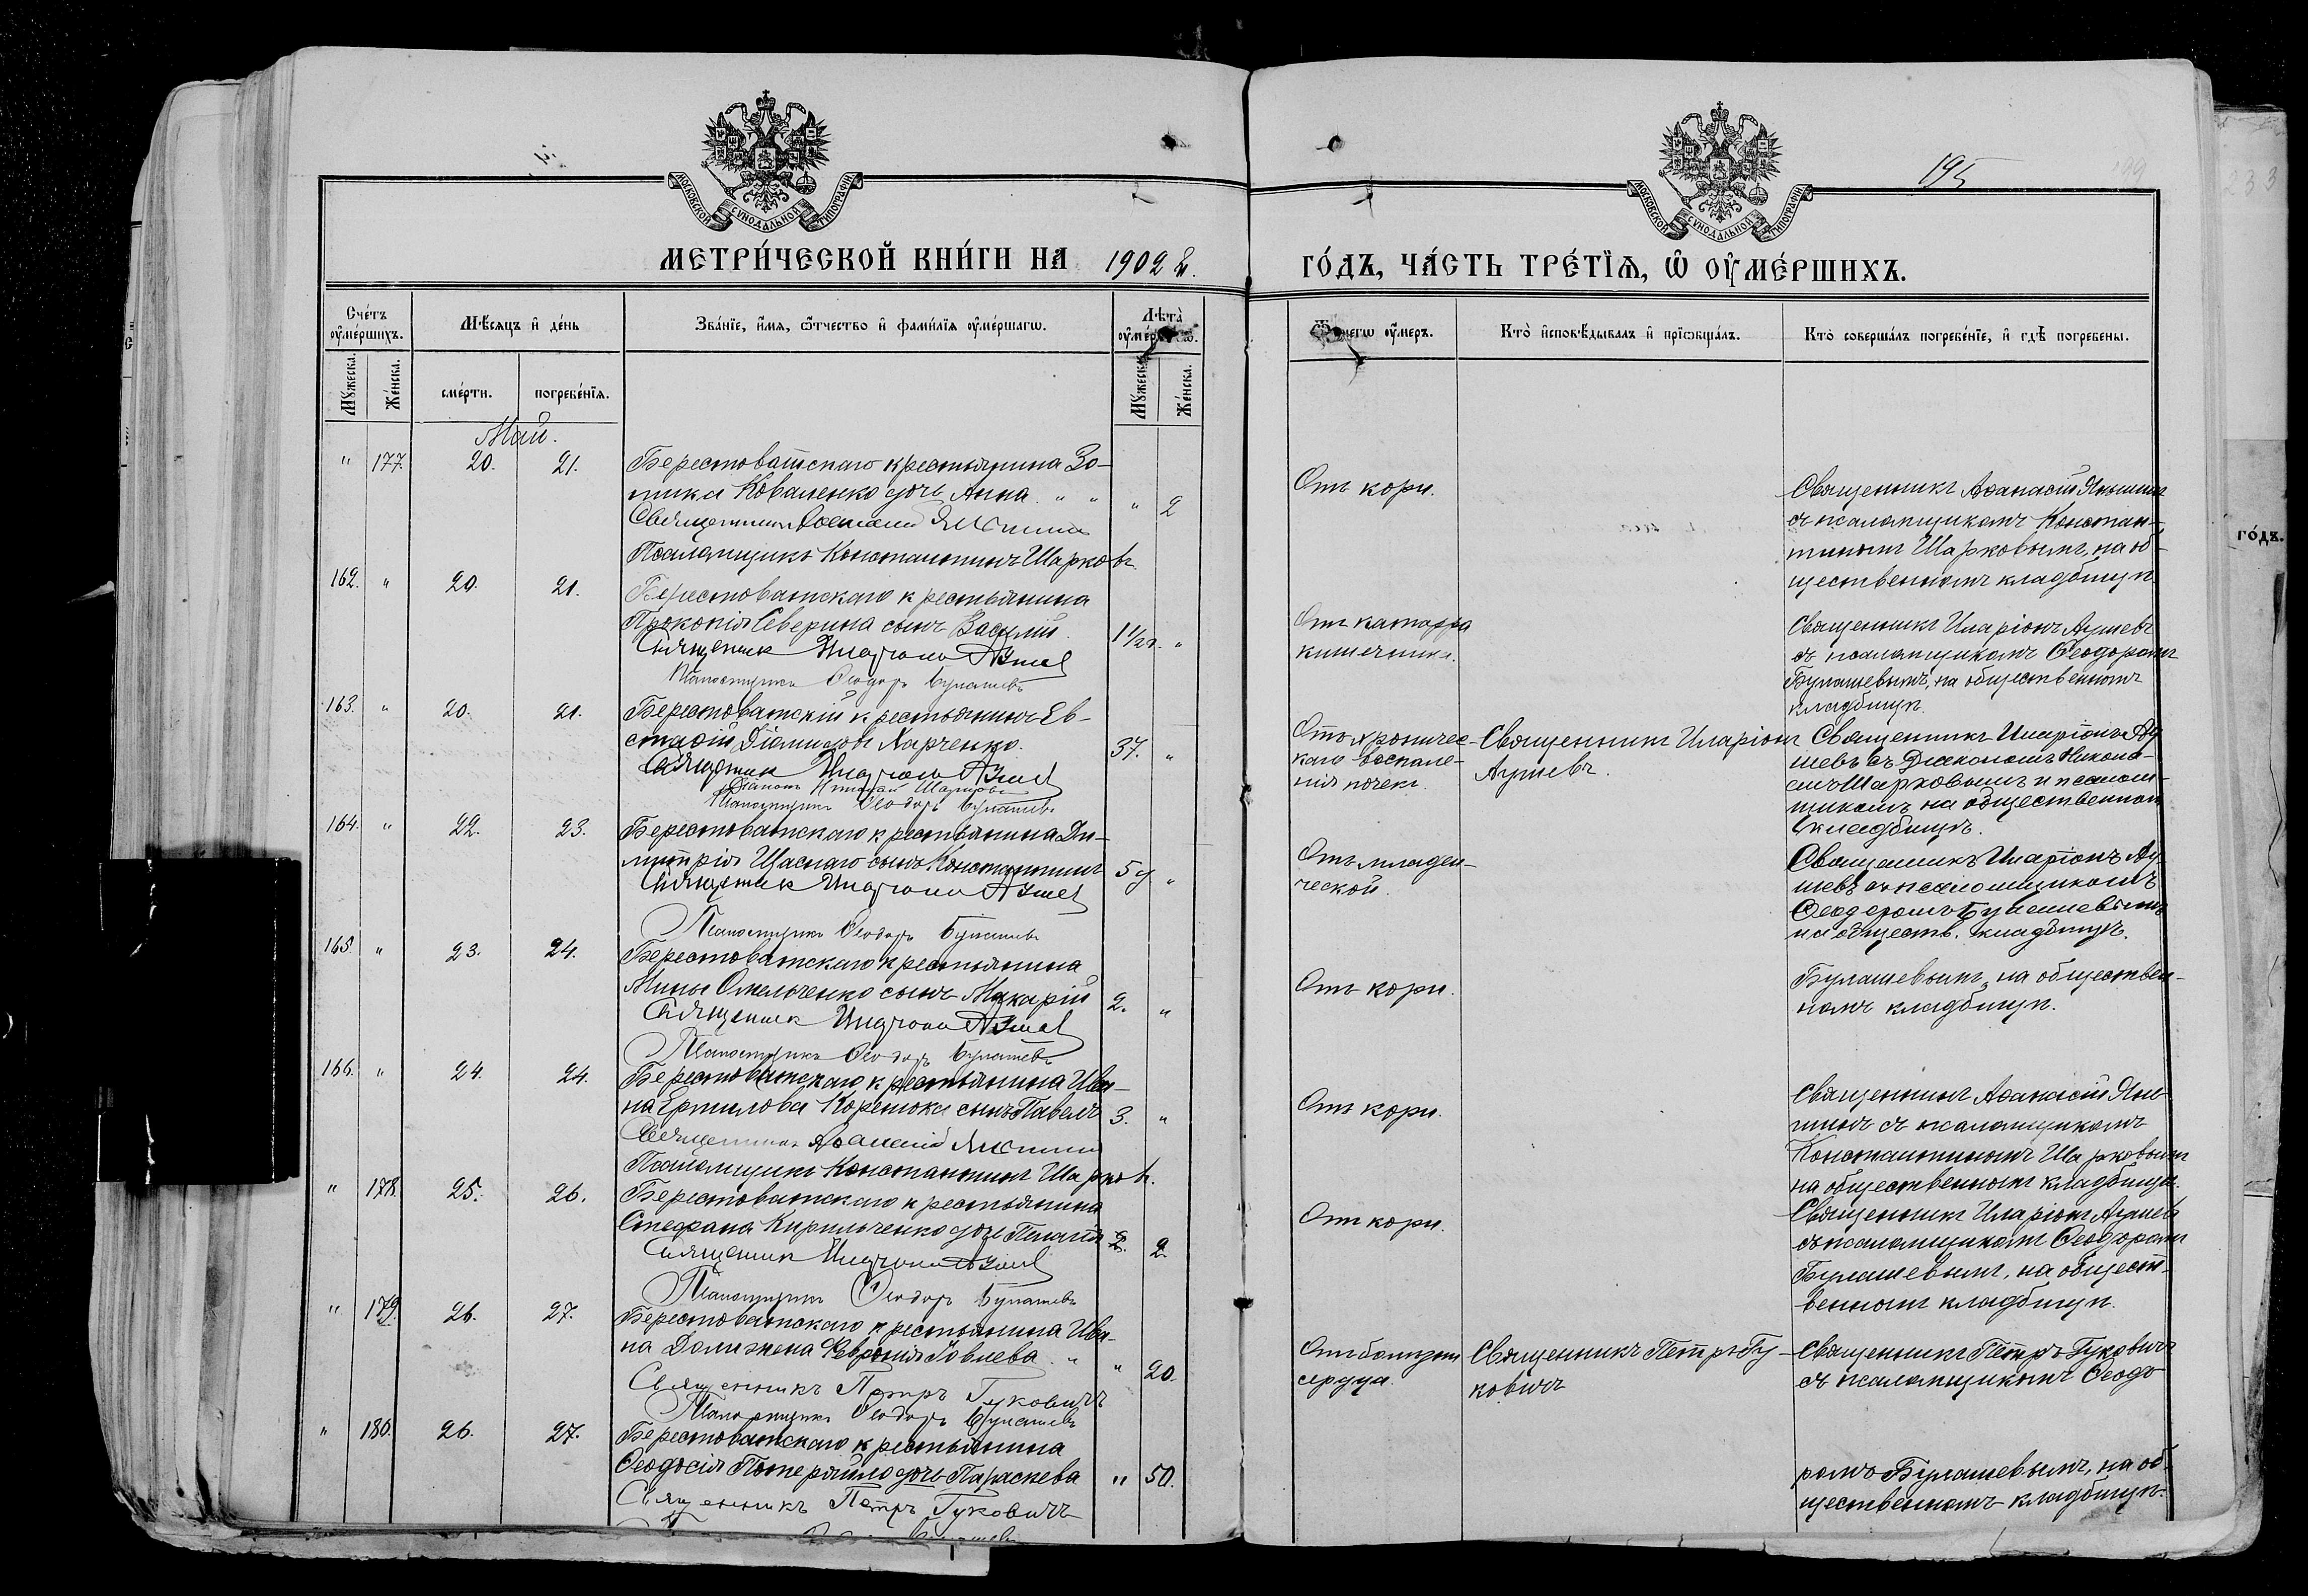 195
МОСКОВСКОЙ СѴНОДАЛЬНОЙ ТИПОГРАФІИ
МОСКОВСКОЙ СѴНОДАЛЬНОЙ ТИПОГРАФІИ
МЕТРИ́ЧЕСКОЙ КНИ́ГИ НА 1902 й.
ГО́ДЪ, ЧА́СТЬ ТРЕ́ТЇѦ, Ѽ ОУ҆МЕ́РШИХЪ.
Сче́тъ оу҆ме́ршихъ.
Мꙋжеска.
Же́нска.
Мѣ́сѧцъ и҆ де́нь
сме́рти.
погребе́нїѧ.
Зва́нїе, и҆́мѧ, ѻ҆́тчество и҆ фамѝлїѧ оу҆ме́ршагѡ.
Лѣта̀
Мꙋжеска.
Же́нска.
оу҆́меръ.
Кто̀ и҆сповѣ́дывалъ и҆ прїѡбща́лъ.
Кто̀ соверша́лъ погребе́нїе, и҆ гдѣ̀ погребены.
Май.
" 177. 20. 21. Берестоватскаго крестьянина Зо-
тика Коваленко дочь Анна. " " " 2
Священникъ Аѳанасий Якшинъ
Псаломщикъ Константинъ Шарковъ
Отъ кори.
Священникъ Аѳанасій Якшинъ
съ псаломщикомъ Констан-
тиномъ Шарковымъ, на об-
щественномъ кладбищѣ.
162. " 20. 21. Берестоватскаго крестьянина
Прокопія Северина сынъ Василій. 1 1/2 г. "
Священник Иларион Ашев
Псаломщикъ Ѳеодоръ Булашевъ
Отъ катарра
кишечника.
Священникъ Иларіонъ Ашевъ
съ псаломщикомъ Ѳеодоромъ
Булашевымъ, на общественномъ
кладбищѣ.
163. " 20. 21. Берестоватскій крестьянинъ Ев-
стафій Діомидовъ Харченко. 37. "
Священник Иларион Ашев
Діаконъ Николай Шарковъ
Псаломщикъ Ѳеодоръ Булашевъ
Отъ хроничес-
каго воспале-
нія почекъ.
Священникъ Иларіонъ
Ашевъ.
Священникъ Иларіонъ А
шевъ съ Діакономъ Никола-
емъ Шарковымъ и псалом-
щикомъ на общественномъ
кладбищѣ.
164. " 22. 23. Берестоватскаго крестьянина Ди-
митрія Щаснаго сынъ Константинъ 5 "
Священник Иларион Ашев
Псаломщикъ Ѳеодоръ Булашевъ
Отъ младен-
ческой.
Священникъ Иларіонъ А
шевъ съ псаломщикомъ
Ѳеодоромъ Булашевымъ
на обществ. кладбищѣ.
165. " 23. 24. Берестоватскаго крестьянина
Мины Омельченко сынъ Макарій 2. "
Священник Иларион Ашев
Псаломщикъ Ѳеодоръ Булашевъ
Отъ кори.
Булашевымъ, на обществен-
номъ кладбищѣ.
166. " 24. 24. Берестоватскаго крестьянина Ива-
на Ермилова сынъ Павелъ 3. "
Священникъ Аѳанасій Якшинъ
Псаломщикъ Константинъ Шарковъ.
Отъ кори.
Священникъ Аѳанасій Як-
шинъ съ псаломщикомъ
Константиномъ Шарковымъ
на общественномъ кладбищѣ.
" 178. 25. 26. Берестоватскаго крестьянина
Стефана Кирильченко дочь Пелагія 2. 2
Священник Иларион Ашев
Псаломщикъ Ѳеодоръ Булашевъ
Отъ кори.
Священникъ Иларіонъ Ашевъ
съ псаломщикомъ Ѳеодоромъ
Булашевымъ, на общест-
венномъ кладбищѣ.
" 179. 26. 27. Берестоватскаго крестьянина Ива-
на жена Февронія Іовлева. " " 20.
Священникъ Петръ Гуковичъ
Псаломщикъ Ѳеодоръ Булашевъ
Отъ болѣзни
сердца.
Священникъ Петръ Гу-
ковичъ
Священникъ Петръ Гуковичъ
съ псаломщикомъ Ѳеодо
" 180. 26. 27. Берестоватскаго крестьянина
Ѳеодосія дочь Параскева " 50.
Священникъ Петръ Гуковичъ
ромъ Булашевымъ, на об-
щественномъ кладбищѣ.
го́дъ.
233